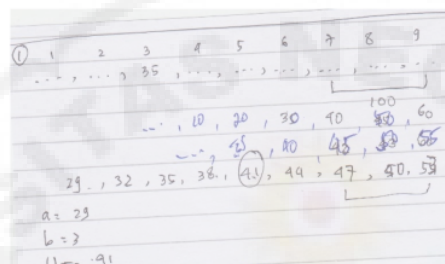 ① 1 2 3 4 5 6 7 8 9
..., ..., 35, ..., ..., ..., ..., ..., ...
100
..., 10, 20, 30, 40, 60
..., 40, 45
29, 32, 35, 38, 41, 44, 47, 50, 53
a = 29
b = 3